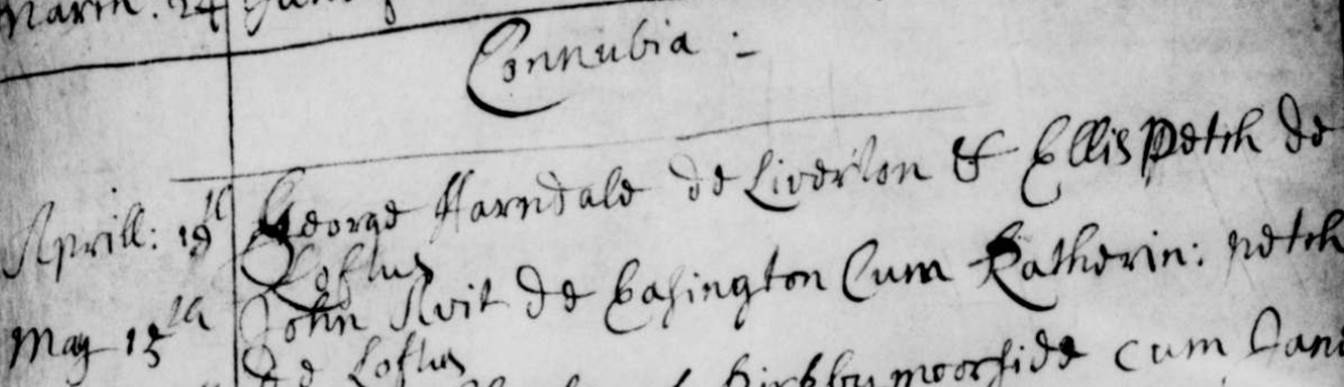 24
Connubia :-
Aprill: 19th George Harndale de Liverton & Ellis Petch de
Loftus
May 15th John de Easington Cum Katherin: petch
de Loftus
Kirkbymoorside cum